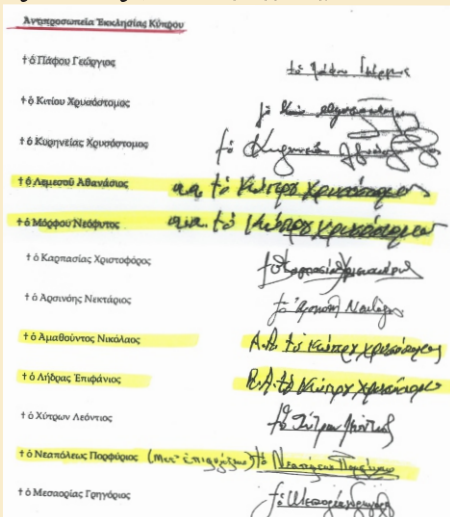 Ἀντιπροσωπεία Ἐκκλησίας Κύπρου
† ὁ Πάφου Γεώργιος † ὁ Πάφου Γεώργιος
† ὁ Κιτίου Χρυσόστομος † ὁ Κιτίου Χρυσόστομος
† ὁ Κυρηνείας Χρυσόστομος † ὁ Κυρηνείας
† ὁ Λεμεσοῦ Ἀθανάσιος α.α. † ὁ Κύπρου Χρυσόστομος
† ὁ Μόρφου Νεόφυτος α.α. † ὁ Κύπρου Χρυσόστομος
† ὁ Καρπασίας Χριστοφόρος † ὁ Καρπασίας Χριστοφόρος
† ὁ Ἀρσινόης Νεκτάριος † ὁ Ἀρσινόης Νεκτάριος
† ὁ Ἀμαθοῦντος Νικόλαος Α.Α. † ὁ Κύπρου Χρυσόστομος
† ὁ Λήδρας Ἐπιφάνιος Α.Α. † ὁ Κύπρου Χρυσόστομος
† ὁ Χύτρων Λεόντιος † ὁ Χύτρων Λεόντιος
† ὁ Νεαπόλεως Πορφύριος (μετ' ἐπιφυλάξεως) † ὁ Νεαπόλεως Πορφύριος
† ὁ Μεσαορίας Γρηγόριος † ὁ Μεσαορίας Γρηγόριος